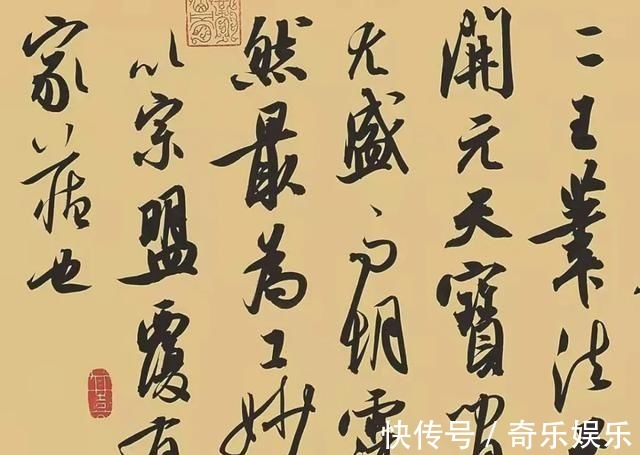 二王筆法
開元天寶
尤盛
然最為工妙
以宗盟覆有
家藏也
快传号／奇乐娱乐